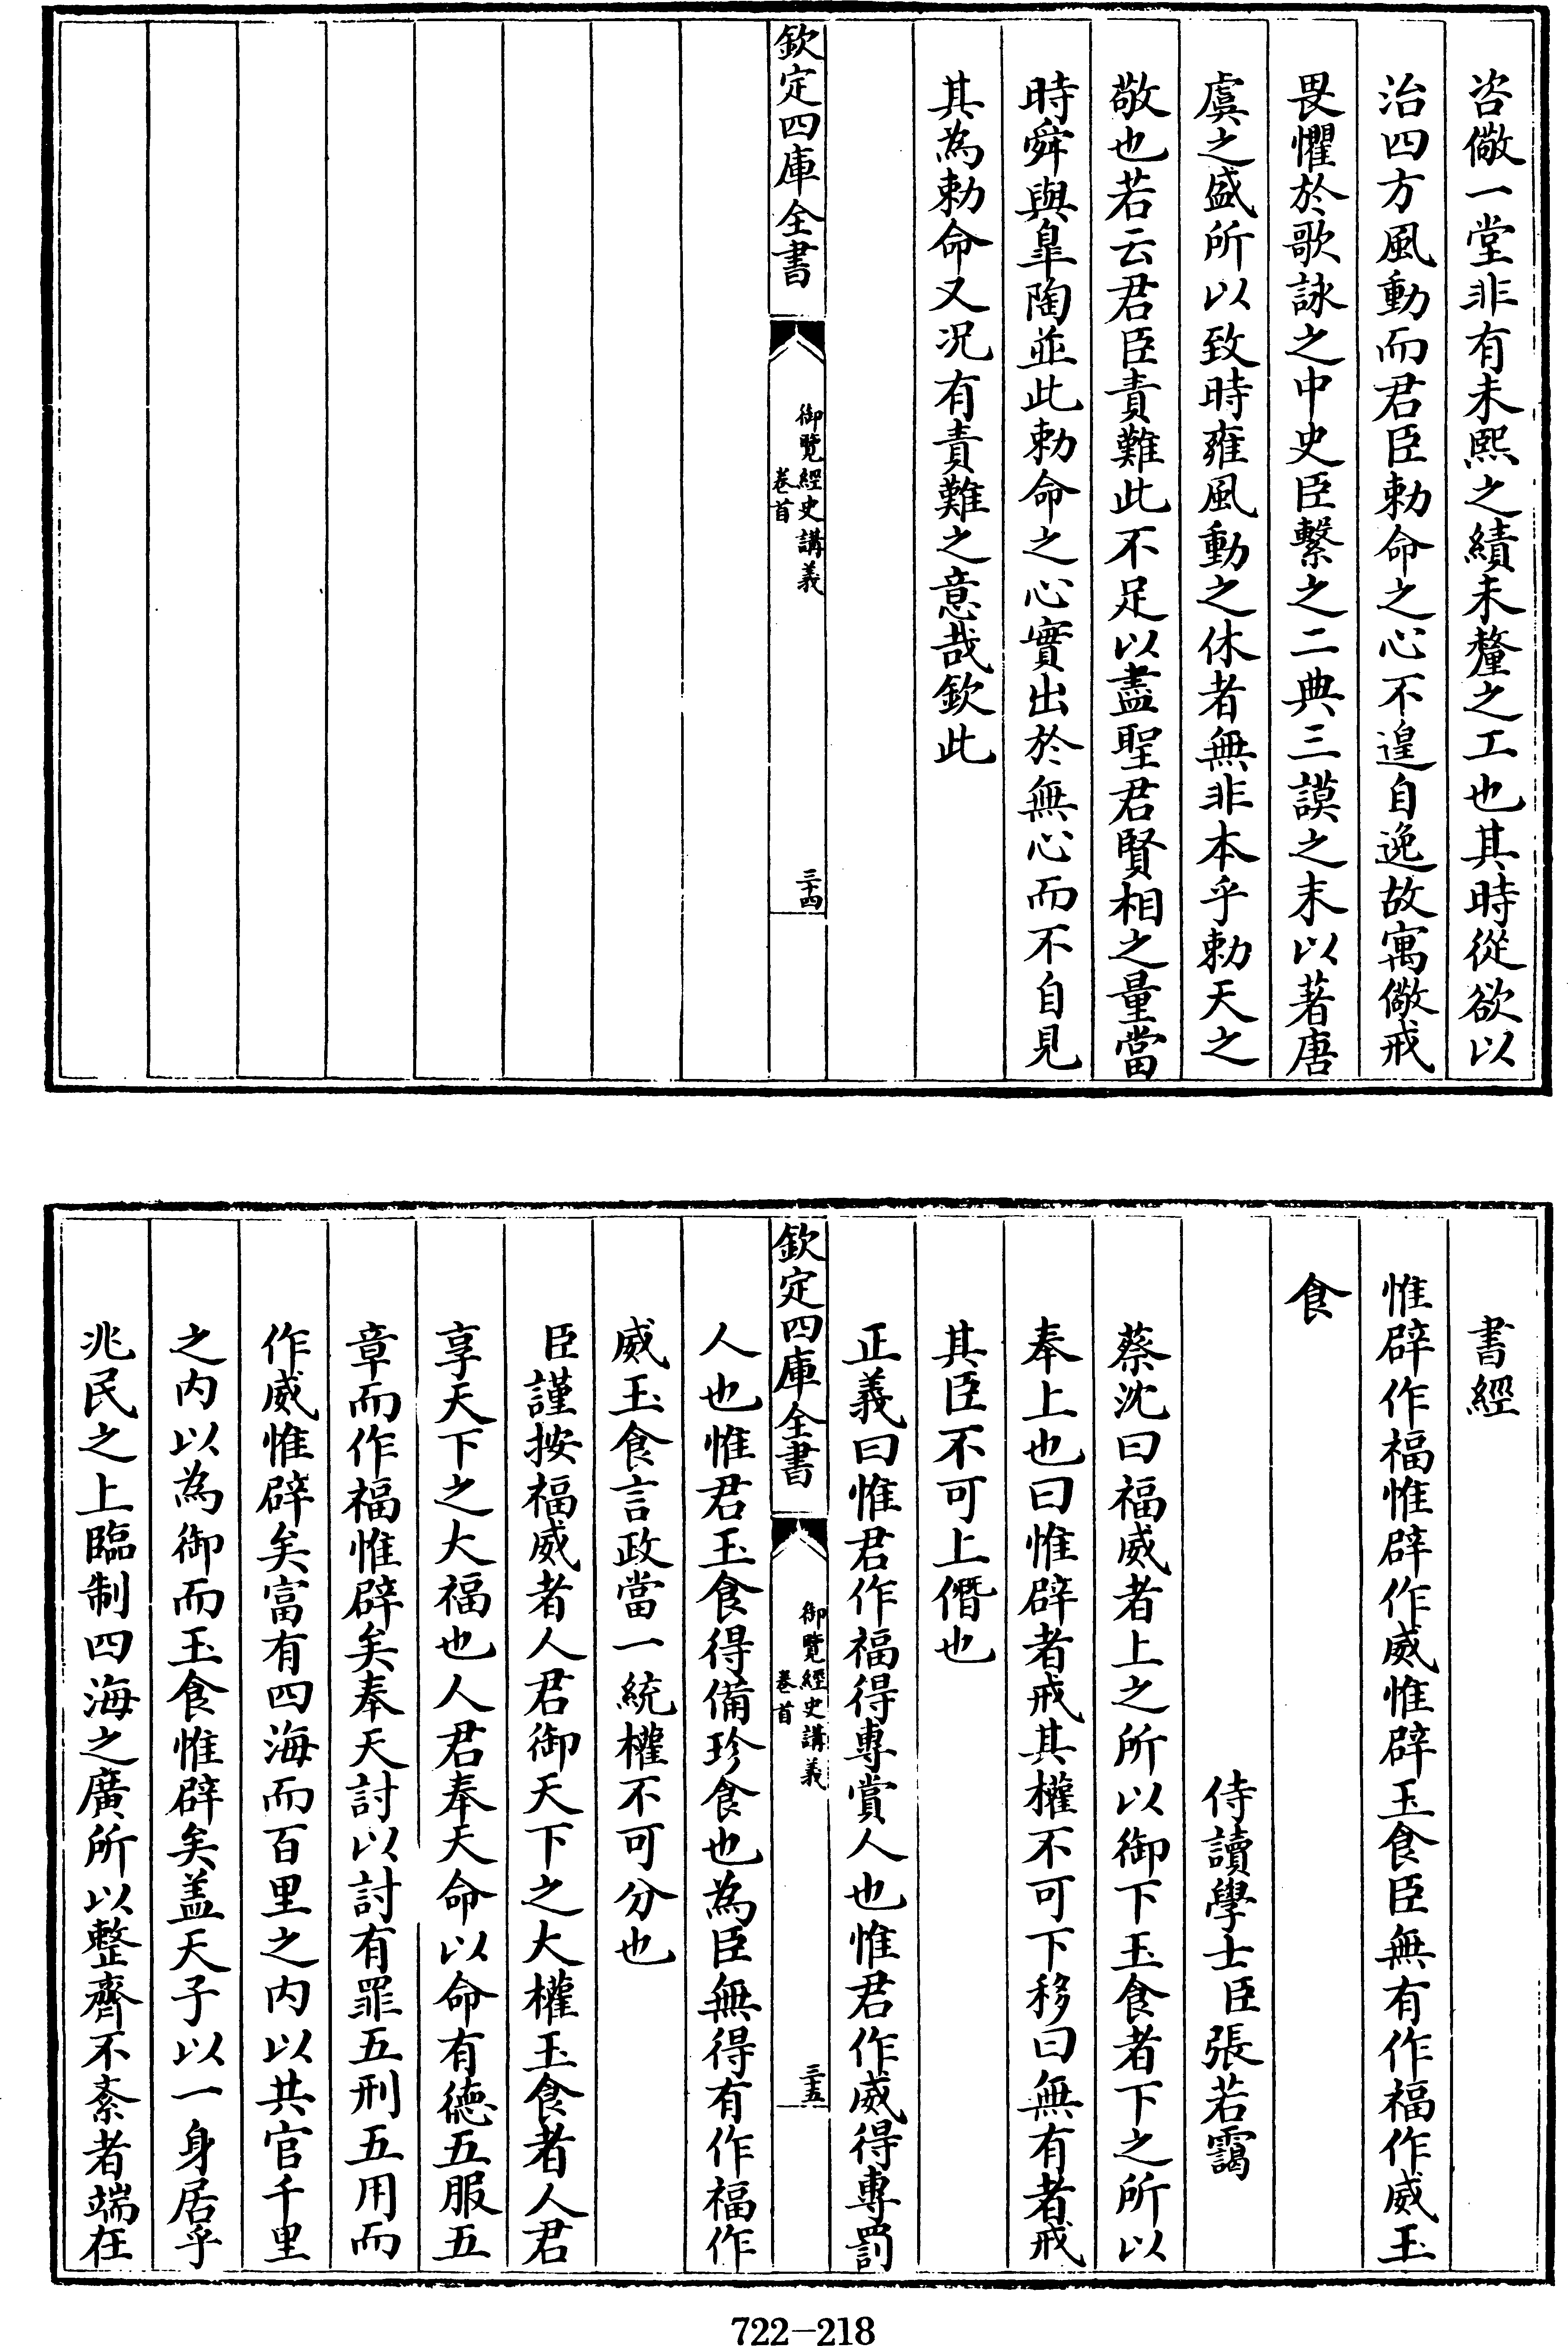 咨儆一堂非有未熙之績未釐之工也其時從欲以
治四方風動而君臣勅命之心不遑自逸故寓儆戒
畏懼於歌詠之中史臣繫之二典三謨之末以著唐
虞之盛所以致時雍風動之休者無非本乎勅天之
敬也若云君臣責難此不足以盡聖君賢相之量當
時舜與臯陶並此勅命之心實出於無心而不自見
其為勅命又况有責難之意哉欽此
欽定四庫全書
御覽經史講義
卷首
三十四
書經
惟辟作福惟辟作威惟辟玉食臣無有作福作威玉
食
侍讀學士臣張若靄
蔡沈曰福威者上之所以御下玉食者下之所以
奉上也曰惟辟者戒其權不可下移曰無有者戒
其臣不可上僭也
正義曰惟君作福得專賞人也惟君作威得專罰
欽定四庫全書
御覽經史講義
卷首
三十五
人也惟君玉食得備珍食也為臣無得有作福作
威玉食言政當一統權不可分也
臣謹按福威者人君御天下之大權玉食者人君
享天下之大福也人君奉天命以命有德五服五
章而作福惟辟矣奉天討以討有罪五刑五用而
作威惟辟矣富有四海而百里之内以共官千里
之内以為御而玉食惟辟矣盖天子以一身居乎
兆民之上臨制四海之廣所以整齊不紊者端在
722-218